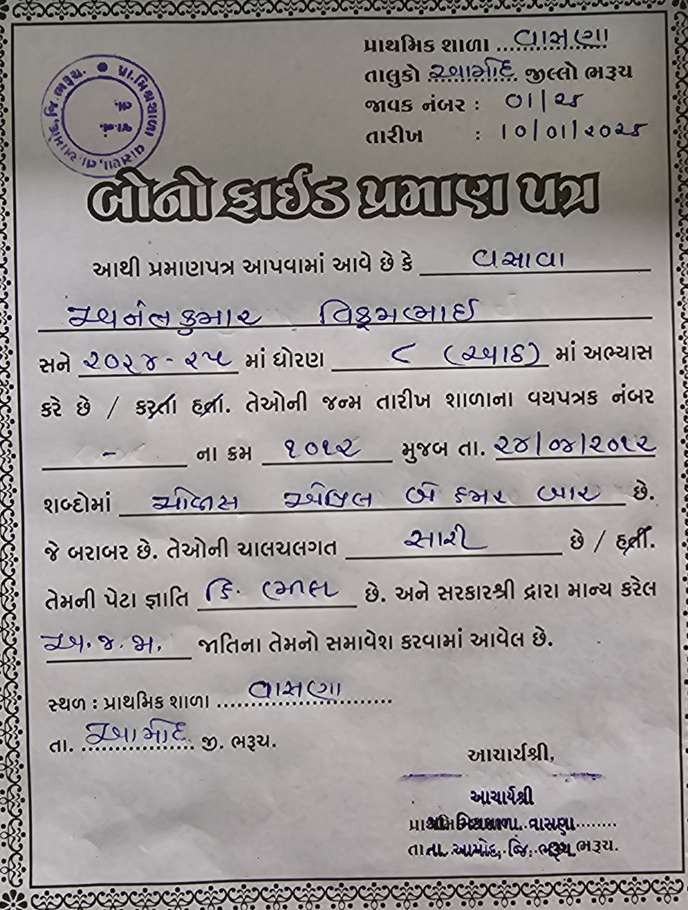 પ્રાથમિક શાળા વાસણા
તાલુકો આમોદ જીલ્લો ભરૂચ
જાવક નંબર : ૦૧/૨૫
તારીખ : ૧૦/૦૧/૨૦૨૫
બોનોફાઈડ પ્રમાણ પત્ર
આથી પ્રમાણપત્ર આપવામાં આવે છે કે વસાવા
વિક્રમભાઈ
સને ૨૦૨૪-૨૫ માં ધોરણ ૮ (આઠ) માં અભ્યાસ
કરે છે / કરતા હતા. તેઓની જન્મ તારીખ શાળાના વયપત્રક નંબર
- ના ક્રમ ૧૦૧૨ મુજબ તા. ૨૪/૦૪/૨૦૧૨
શબ્દોમાં ચોવીસ એપ્રિલ બે હજાર બાર છે.
જે બરાબર છે. તેઓની ચાલચલગત સારી છે / હતી.
તેમની પેટા જ્ઞાતિ હિ. ભીલ છે. અને સરકારશ્રી દ્વારા માન્ય કરેલ
અ.જ.જા. જાતિના તેમનો સમાવેશ કરવામાં આવેલ છે.
સ્થળ : પ્રાથમિક શાળા વાસણા
તા. આમોદ જી. ભરૂચ.
આચાર્યશ્રી,
આચાર્યશ્રી
વાસણા
તા. આમોદ, જિ. ભરૂચ ભરૂચ.